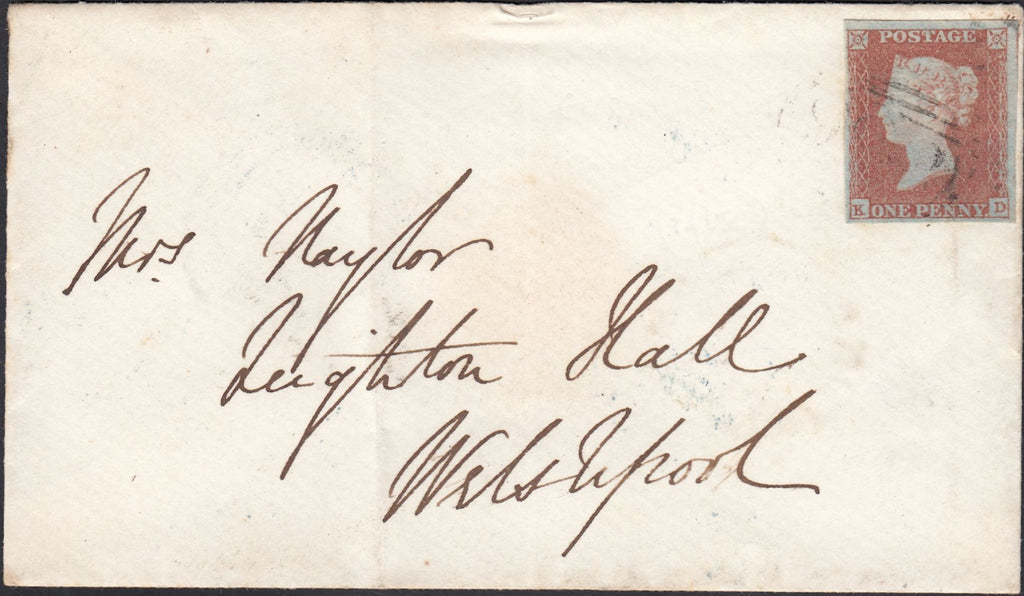 POSTAGE
K ONE PENNY D
Mrs Naylor
Leighton Hall
Welshpool